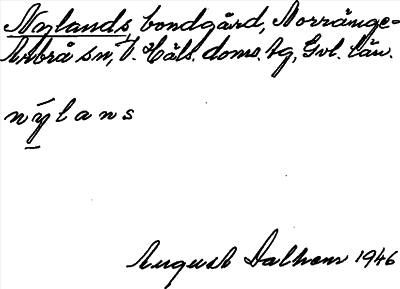 Nylands, bondgård, Norränge-
Arbrå sn, V. Häls. doms. tg, Gvl. län.
nýlans
August Dalhem 1946